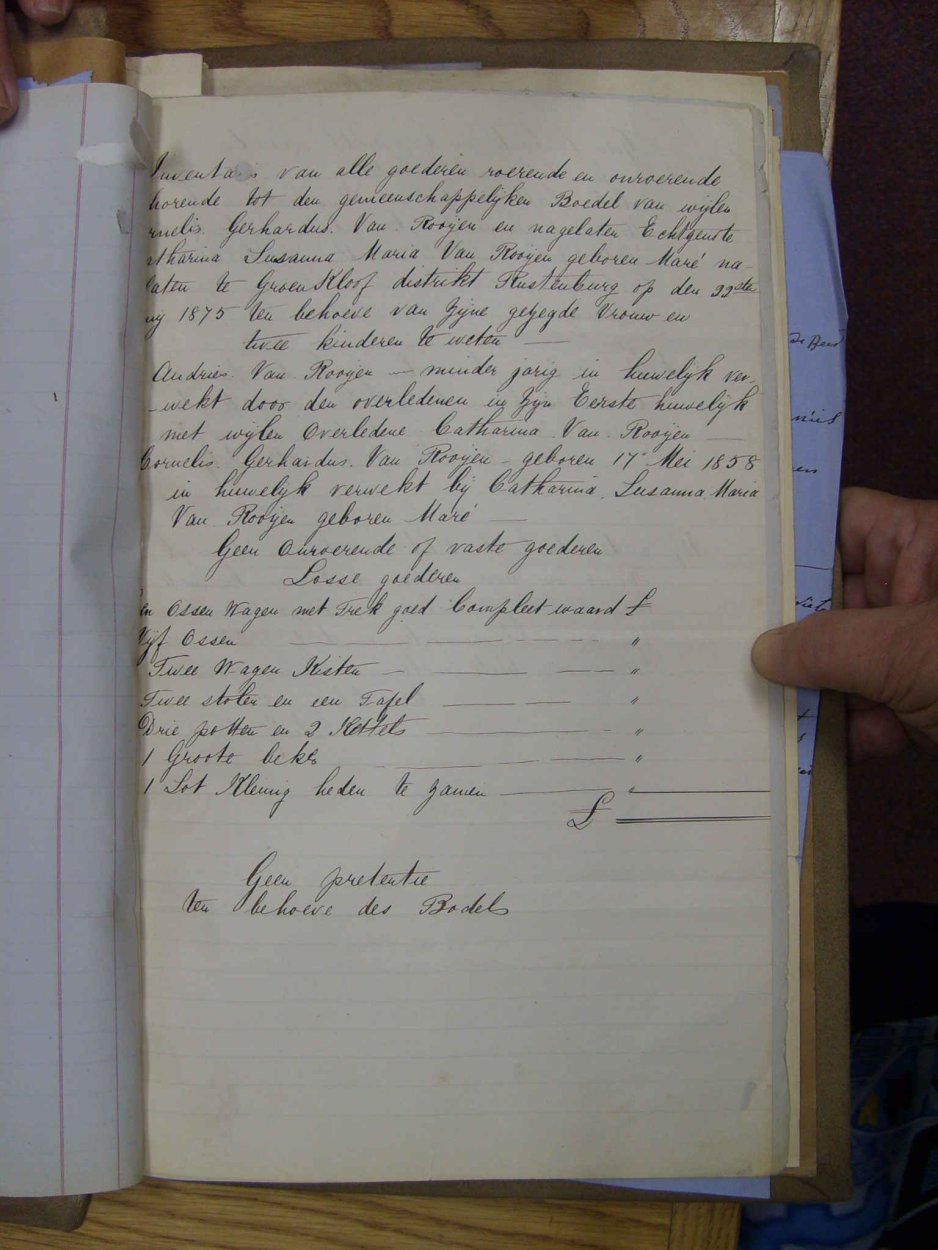 Inventaris van alle goederen roerende en onroerende
horende tot den gemeenschappelyken Boedel van wylen
rnelis Gerhardus. Van Rooyen en nagelaten Echtgenote
atharina Susanna Maria Van Rooyen geboren Maré na-
laten te Groen Kloof distrikt Rustenburg op den 22ste
1875 ten behoeve van Zyne gezegde Vrouw en
twee kinderen te weten —
Andries Van Rooyen — minder jarig in huwelyk ver-
-wekt door den overledenen in Zyn Eerste huwelyk
met wylen Overledene Catharina Van Rooyen —
Cornelis. Gerhardus. Van Rooyen - geboren 17 Mei 1858
in huwelyk verwekt by Catharina Susanna Maria
Van Rooyen geboren Maré —
Geen Onroerende of vaste goederen
Losse goederen
en Ossen Wagen met Trek goed Compleet waard £
Vyf Ossen "
Twee Wagen Kisten "
Twee stolen en een Tafel "
Drie potten en 2 Kettels "
1 Groote "
1 Lot Kleinig heden te zamen "
£
Geen pretentie
ten behoeve des Bodels